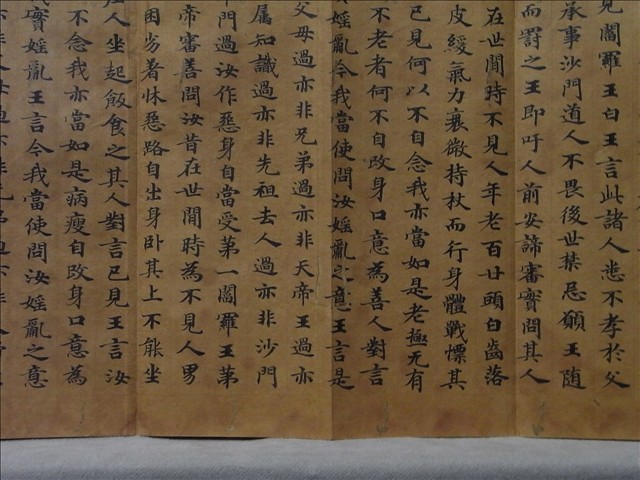 見閻羅王白王言此諸人悉不孝於父
承事沙門道人不畏後世禁忌願王随
而罰之王即呼人前安諦審實問其人
在世間時不見人年老百廿頭白齒落
皮緩氣力衰微持杖而行身體戰慄其
已見何以不自念我亦當如是老極无有
不老者何不自改身口意為善人對言
婬亂今我當使問汝婬亂之意王言是
父母過亦非兄弟過亦非天帝王過亦
属知識過亦非先祖去人過亦非沙門
門過汝作惡身自當受第一閻羅王第
帝審善問汝昔在世間時為不見人男
困劣著牀惡路自出身卧其上不能坐
人坐起飯食之其人對言已見王言汝
不念我亦當如是病瘦自改身口意為
實婬亂王言今我當使問汝婬亂之意